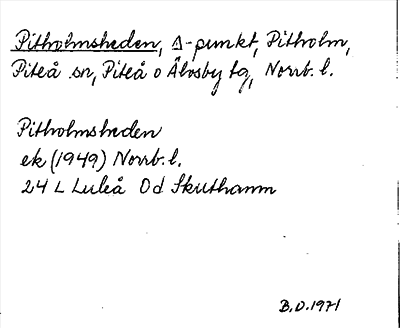 Pitholmsheden, Δ-punkt, Pitholm,
Piteå sn, Piteå o Älvsby tg, Norrb. l.
Pitholmsheden
ek (1949) Norrb. l.
24 L Luleå 0d Skuthamn
B.O. 1971